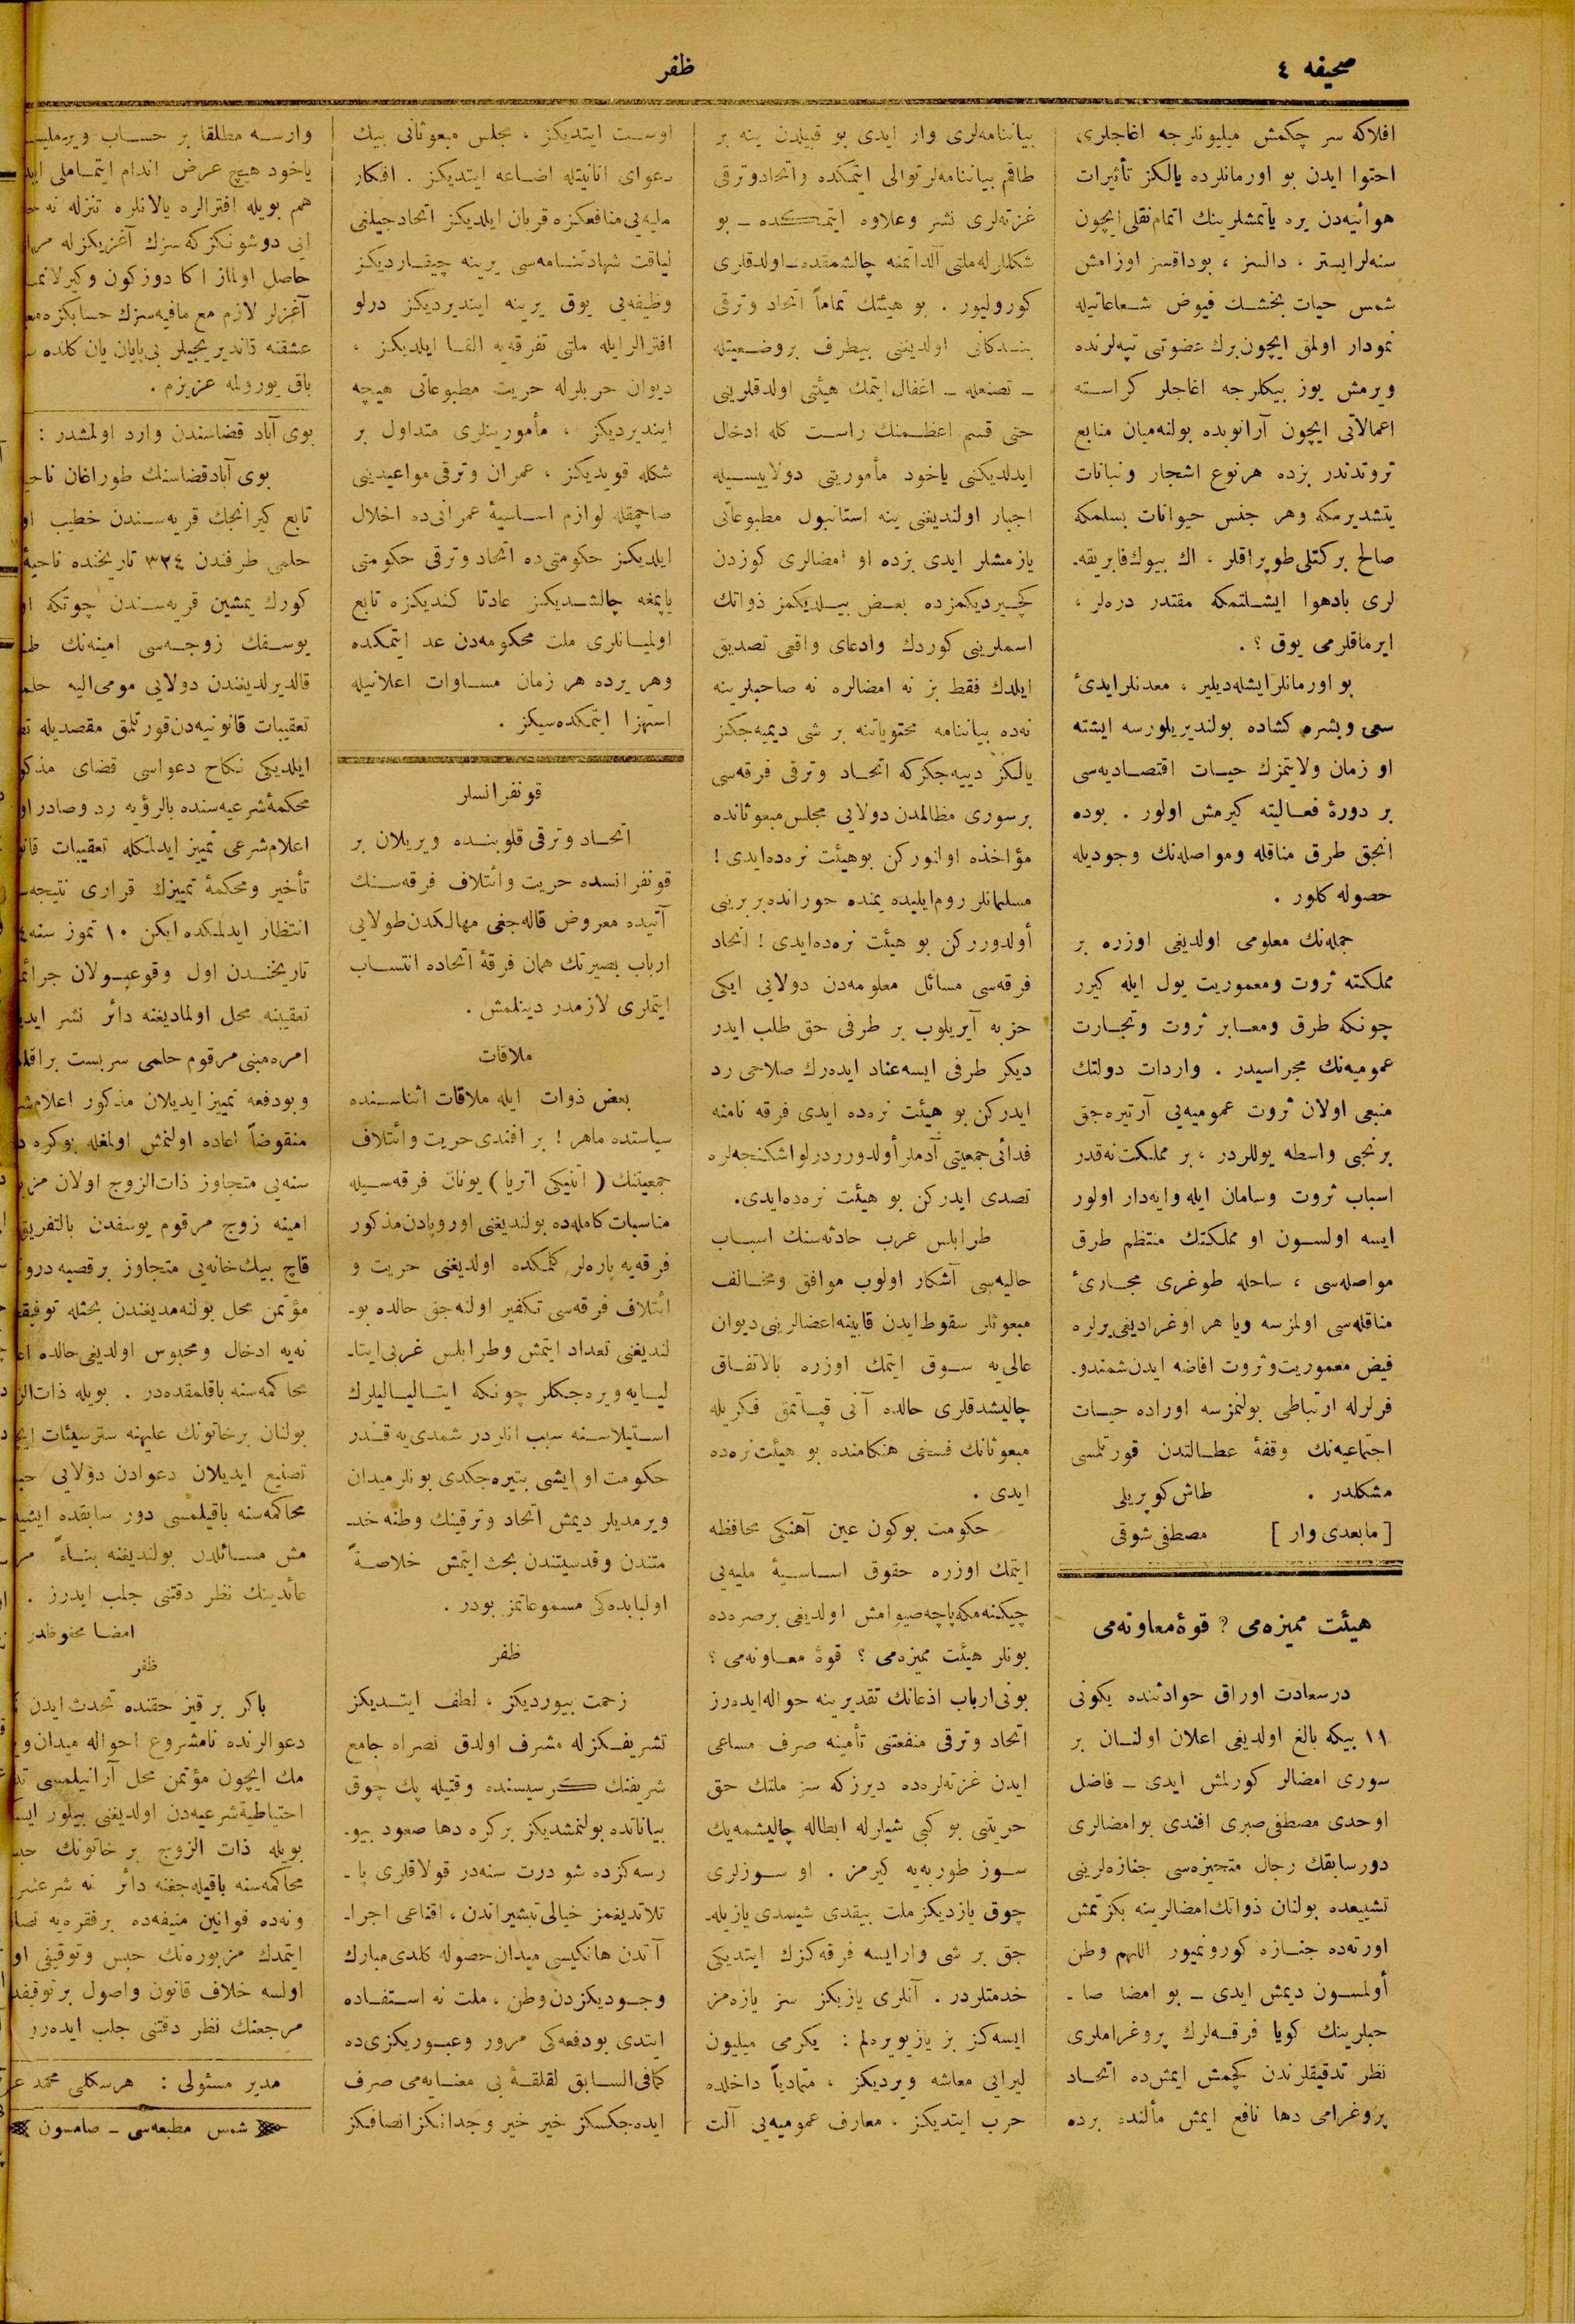 صحیفه ٤
ظفر
افلاکه سر چکمش میلیونلرجه اغاجلری
احتوا ایدن بو اورمانلرده یالکز تأثیرات
هوائیه‌دن یره یاتمشلرینك اتمام نقلی ایچون
سنه‌لر ایستر ، دالسز ، بوداقسز اوزامش
شمس حیات بخشك فیوض شعاعاتیله
نمودار اولمق ایچون برك عضوتی تپه‌لرنده
ویرمش یوز بیکلرجه اغاجلر کراسته
اعمالاتی ایچون آرانوبده بولنه‌میان منابع
ثروتدندر بزده هرنوع اشجار ونباتات
یتشدیرمکه وهر جنس حیوانات بسلمکه
صالح برکتلی طوپراقلر ، اك بیوك فابریقه‌ـ
لری بادهوا ایشلتمکه مقتدر دره‌لر ،
ایرماقلرمی یوق ؟ .
بو اورمانلر ایشله‌دیلیر ، معدنلر ایدئ
سعی وبشره کشاده بولندیریلورسه ایشته
او زمان ولایتمزك حیات اقتصادیه‌سی
بر دورۀ فعالیته کیرمش اولور . بوده
انجق طرق مناقله ومواصله‌نك وجودیله
حصوله کلور .
جمله‌نك معلومی اولدیغی اوزره بر
مملکته ثروت ومعموریت یول ایله کیرر
چونکه طرق ومعابر ثروت وتجارت
عمومیه‌نك مجراسیدر . واردات دولتك
منبعی اولان ثروت عمومیه‌یی آرتیره‌جق
برنجی واسطه یوللردر ، بر مملکت نه‌قدر
اسباب ثروت وسامان ایله وایه‌دار اولور
ایسه اولسون او مملکتك منتظم طرق
مواصله‌سی ، ساحله طوغری مجارئ
مناقله‌سی اولمزسه ویا هر اوغرادیغی یرلره
فیض معموریت وثروت افاضه ایدن شمندوـ
فرلرله ارتباطی بولنمزسه اوراده حیات
اجتماعیه‌نك وقفۀ عطالتدن قورتلمسی
مشکلدر . طاش کوپریلی
[ مابعدی وار ] مصطفی شوقی
هیئت ممیزه‌می ? قوۀ معاونه‌می
درسعادت اوراق حوادثنده یکونی
١١ بیکه بالغ اولدیغی اعلان اولنان بر
سوری امضالر کورلمش ایدی ــ فاضل
اوحدی مصطفی صبری افندی بو امضالری
دور سابقك رجال متحیزه‌سی جنازه‌لرینی
تشییعده بولنان ذواتك امضالرینه بکزتمش
اورته‌ده جنازه کورونمیور اللهم وطن
أولمسون دیمش ایدی ــ بو امضا صا ـ
حبلرینك کویا فرقه‌لرك پروغراملری
نظر تدقیقلرندن کچمش ایمش‌ده اتحاد
پروغرامی دها نافع ایمش مألنده برده
بیاننامه‌لری وار ایدی بو قبیلدن ینه بر
طاقم بیاننامه‌لر توالی ایتمکده واتحاد وترقی
غزته‌لری نشر وعلاوه ایتمکده ــ بو
شکللرله ملتی آلداتمغه چالشمقده ــ اولدقلری
کورولیور . بو هیئتك تماماً اتحاد وترقی
بندکانی اولدیغنی بیطرف بروضعیتله
ــ تصنعله ــ اغفال ایتمك هیئتی اولدقلرینی
حتی قسم اعظمنك راست کله ادخال
ایدلدیکنی یاخود مأموریتی دولاییسیله
اجبار اولندیغنی ینه استانبول مطبوعاتی
یازمشلر ایدی بزده او امضالری کوزدن
کچیردیکمزده بعض بیلدیکمز ذواتك
اسملرینی کوردك وادعای واقعی تصدیق
ایلدك فقط بز نه امضالره نه صاحبلرینه
نه‌ده بیاننامه محتویاتنه بر شی دیمیه‌جکز
یالکز دییه‌جکزکه اتحاد وترقی فرقه‌سی
برسوری مظالمدن دولایی مجلس مبعوثانده
مؤاخذه اولنورکن بوهیئت نره‌ده‌ایدی !
مسلمانلر روم ایلیده یمنده حورانده بربرینی
أولدوررکن بو هیئت نره‌ده‌ایدی ! اتحاد
فرقه‌سی مسائل معلومه‌دن دولایی ایکی
حزبه آیریلوب بر طرفی حق طلب ایدر
دیکر طرفی ایسه عناد ایده‌رك صلاحی رد
ایدرکن بو هیئت نره‌ده ایدی فرقه نامنه
فدائی جمعیتی آدملر أولدوررد رلو اشکنجه‌لره
تصدی ایدرکن بو هیئت نره‌ده‌ایدی.
طرابلس غرب حادثه‌سنك اسباب
حالیه‌سی آشکار اولوب موافق ومخالف
مبعوثلر سقوط ایدن قابینه اعضالرینی دیوان
عالی‌یه سوق ایتمك اوزره بالاتفاق
چالیشدقلری حالده آنی قپاتمق فکریله
مبعوثانك فسخی هنکامنده بو هیئت نره‌ده
ایدی .
حکومت بوکون عین آهنکی محافظه
ایتمك اوزره حقوق اساسیۀ ملیه‌یی
چیکنه‌مکه پاچه‌صیوامش اولدیغی برصره‌ده
بونلر هیئت ممیزه‌می ؟ قوۀ معاونه‌می ؟
بونی ارباب اذعانك تقدیرینه حواله ایده‌رز
اتحاد وترقی منفعتنی تأمینه صرف مساعی
ایدن غزته‌لره‌ده دیرزکه سز ملتك حق
حریتنی بو کبی شیلرله ابطاله چالیشمه‌یك
سوز طوربه‌یه کیرمز . او سوزلری
چوق یازدیکز ملت بیقدی شیمدی یازیله‌ـ
جق بر شی وار ایسه فرقه‌کزك ایتدیکی
خدمتلردر . آنلری یازیکز سز یازه‌مز
ایسه‌کز بز یازیویره‌لم : یکرمی میلیون
لیرایی معاشه ویردیکز ، متمادیاً داخلده
حرب ایتدیکز ، معارف عمومیه‌یی آلت
اوست ایتدیکز ، مجلس مبعوثانی بیك
دعوای انانیتله اضاعه ایتدیکز . افکار
ملیه‌یی منافعکزه قربان ایلدیکز اتحادجیلغی
لیاقت شهادتنامه‌سی یرینه چیقاردیکز
وظیفه‌یی یوق یرینه ایندیردیکز درلو
افترالر ایله ملتی تفرقه‌یه القا ایلدیکز ،
دیوان حربلرله حریت مطبوعاتی هیچه
ایندیردیکز ، مأمورینلری متداول بر
شکله قویدیکز ، عمران وترقی مواعیدینی
صاچمقله لوازم اساسیۀ عمرانی‌ده اخلال
ایلدیکز حکومتی‌ده اتحاد وترقی حکومتی
یاپمغه چالشدیکز عادتا کندیکزه تابع
اولمیانلری ملت محکومه‌دن عد ایتمکده
وهر یرده هر زمان مساوات اعلانیله
استهزا ایتمکده‌سیکز .
قونفرانسلر
اتحاد وترقی قلوبنده ویریلان بر
قونفرانسده حریت وائتلاف فرقه‌سنك
آتیده معروض قاله‌جغی مهالکدن طولایی
ارباب بصیرتك همان فرقۀ اتحاده انتساب
ایتملری لازمدر دینلمش .
ملاقات
بعض ذوات ایله ملاقات اثناسنده
سیاستده ماهر ! بر افندی حریت وائتلاف
جمعیتنك ( اتنیکی اتریا ) یونان فرقه‌سیله
مناسبات کامله‌ده بولندیغنی اوروپادن مذکور
فرقه‌یه پاره‌لر کلمکده اولدیغنی حریت و
ائتلاف فرقه‌سی تکفیر اولنه‌جق حالده بوـ
لندیغنی تعداد ایتمش وطرابلس غربی ایتاـ
لیایه ویره‌جکلر چونکه ایتالیالیلرك
استیلاسنه سبب انلردر شمدی‌یه قدر
حکومت او ایشی بتیره‌جکدی بونلر میدان
ویرمدیلر دیمش اتحاد وترقینك وطنه خدـ
متندن وقدسیتندن بحث ایتمش خلاصةً
اولبابده‌کی مسموعاتمز بودر .
ظفر
زحمت بیوردیکز ، لطف ایتدیکز
تشریفکزله مشرف اولدق نصراه جامع
شریفنك کرسیسنده وقتیله پك چوق
بیاناتده بولنمشدیکز برکره دها صعود بیوـ
رسه‌کزده شو درت سنه‌در قولاقلری پا ـ
تلاتدیغمز خیالی تبشیراتدن ، اقناعی اجراـ
آتدن هانکیسی میدان حصوله کلدی مبارك
وجودیکزدن وطن ، ملت نه استفاده
ایتدی بودفعه‌کی مرور وعبوریکزی‌ده
کمافی السابق لقلقۀ بی معنایه‌می صرف
ایده‌جکسکز خیر خیر وجدانکز انصافکز
وارسه مطلقا بر حساب ویرملیسـ
یاخود هیچ عرض اندام ایتماملی اید
هم بویله افترالره یالانلره تنزله نه
انی دوشونکزکه سزك آغزیکزله
حاصل اولماز اکا دوزکون وکیرلانمـ
آغزلر لازم مع مافیه سزك حسابکزه
عشقنه قاندیریجیلر بی‌پایان یان کلنده
باق یورولمه عزیزم .
بوی آباد قضاسندن وارد اولمشدر :
بوی آباد قضاسنك طوراغان ناحیـ
تابع کیرانجك قریه‌سندن خطیب
حلمی طرفندن ٣٢٤ تاریخنده ناحیۀ
کورك یمشین قریه‌سندن چوتکه
یوسفك زوجه‌سی امینه‌نك
قالدیرلدیغندن دولایی مومی‌الیه
تعقیبات قانونیه‌دن قورتلمق مقصدیله
ایلدیکی نکاح دعواسی قضای مذکو
محکمۀ شرعیه‌سنده بالرؤیه رد وصادر
اعلام شرعی تمییز ایدلمکله تعقیبات
تأخیر ومحکمۀ تمییزك قراری نتیجه‌
انتظار ایدلمکده ایکن ١٠ تموز سنه
تاریخندن اول وقوعبولان جرائم
تعقیبنه محل اولمادیغنه دائر نشر
امره مبنی مرقوم حلمی سربست
وبودفعه تمییز ایدیلان مذکور اعلام
منقوضاً اعاده اولنمش اولمغله بوکره
سنه‌یی متجاوز ذات‌الزوج اولان
امینه زوج مرقوم یوسفدن بالتفریق
قاچ بیك خانه‌یی متجاوز برقصبه
مؤتمن محل بولنه‌مدیغندن بحثله
نه‌یه ادخال ومحبوس اولدیغی حالده
محاکمه‌سنه باقلمقده‌در . بویله
بولنان برخاتونك علیهنه سترسیئات
تصنیع ایدیلان دعوادن دولایی
محاکمه‌سنه باقیلمسی دور سابقده
مش مسائلدن بولندیغنه بناءً
عائدینك نظر دقتنی جلب ایدرز .
امضا محفوظدر
ظفر
باکر بر قیز حقنده تحدث ایدن
دعوالرنده نامشروع احواله میدان
مك ایچون مؤتمن محل آرانیلمسی
احتیاطیۀ شرعیه‌دن اولدیغنی بیلور
بویله ذات الزوج بر خاتونك
محاکمه‌سنه باقیله‌جغنه دائر نه
ونه‌ده قوانین منیفه‌ده برفقره‌یه
ایتمدك مزبوره‌نك حبس وتوقیفی
اولسه خلاف قانون واصول
مرجعنك نظر دقتنی جلب ایده‌رز
مدیر مسئولی : هرسکلی محمد
شمس مطبعه‌سی ــ صامسون